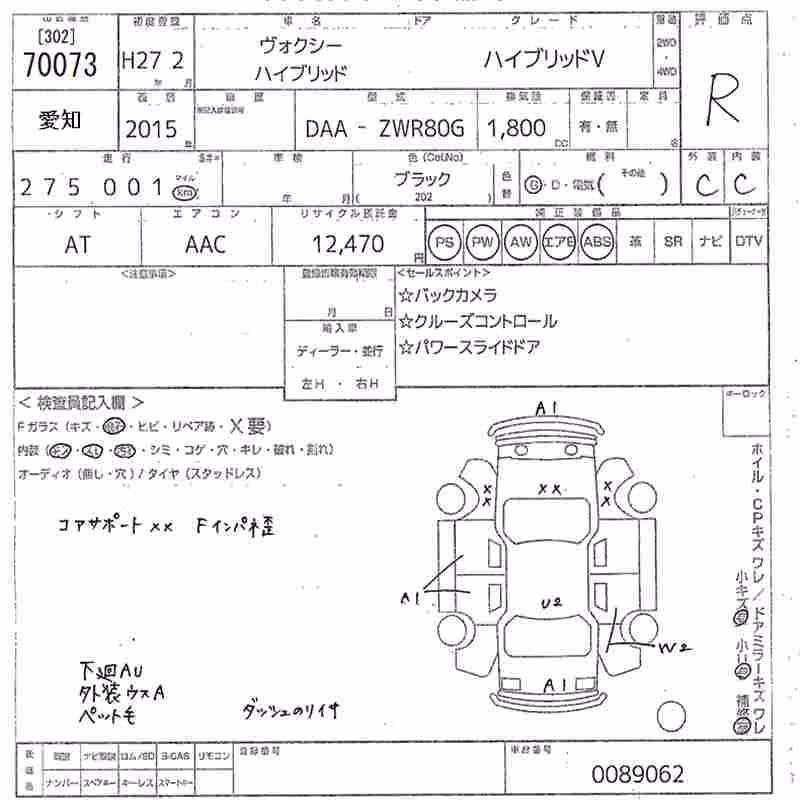 初度登録 車名 ドア グレード 評価点
[302]
70073
H27 2
年 月
ヴォクシー
ハイブリッド
ハイブリッドV
2WD
・
4WD
R
愛知
2015
年
型式
DAA - ZWR80G
排気量
1,800
CC
有・無
定員
名
走行
275001
マイル
km
車検
年 月
色(Col.No)
ブラック
( 202 )
色替
燃料
G・D・電気( その他 )
外装
C
内装
C
シフト
AT
エアコン
AAC
リサイクル預託金
12,470
円
純正装備品
PS PW AW エアB ABS 革 SR ナビ DTV
<注意事項>
月 日
輸入車
ディーラー・並行
左H ・ 右H
<セールスポイント>
☆バックカメラ
☆クルーズコントロール
☆パワースライドドア
キーロック
<検査員記入欄>
Fガラス(キズ・飛石・ヒビ・リペア跡・X要)
内装(キズ・スレ・汚れ・シミ・コゲ・穴・キレ・破れ・割れ)
オーディオ(無し・穴)/タイヤ(スタッドレス)
コアサポートxx Fインパネ歪
下廻AU
外装ウスA
ペット毛
ダッシュのリイサ
A1
x x
x x
x x
A1
U2
W2
A1
ホイル・CPキズワレ/ドアミラーキズワレ
小キズ有 小U有 補修有
取説 ナビ取説 ロム/SD B-CAS リモコン
ナンバー スペアキー キーレス スマートキー
登録番号
車台番号
0089062